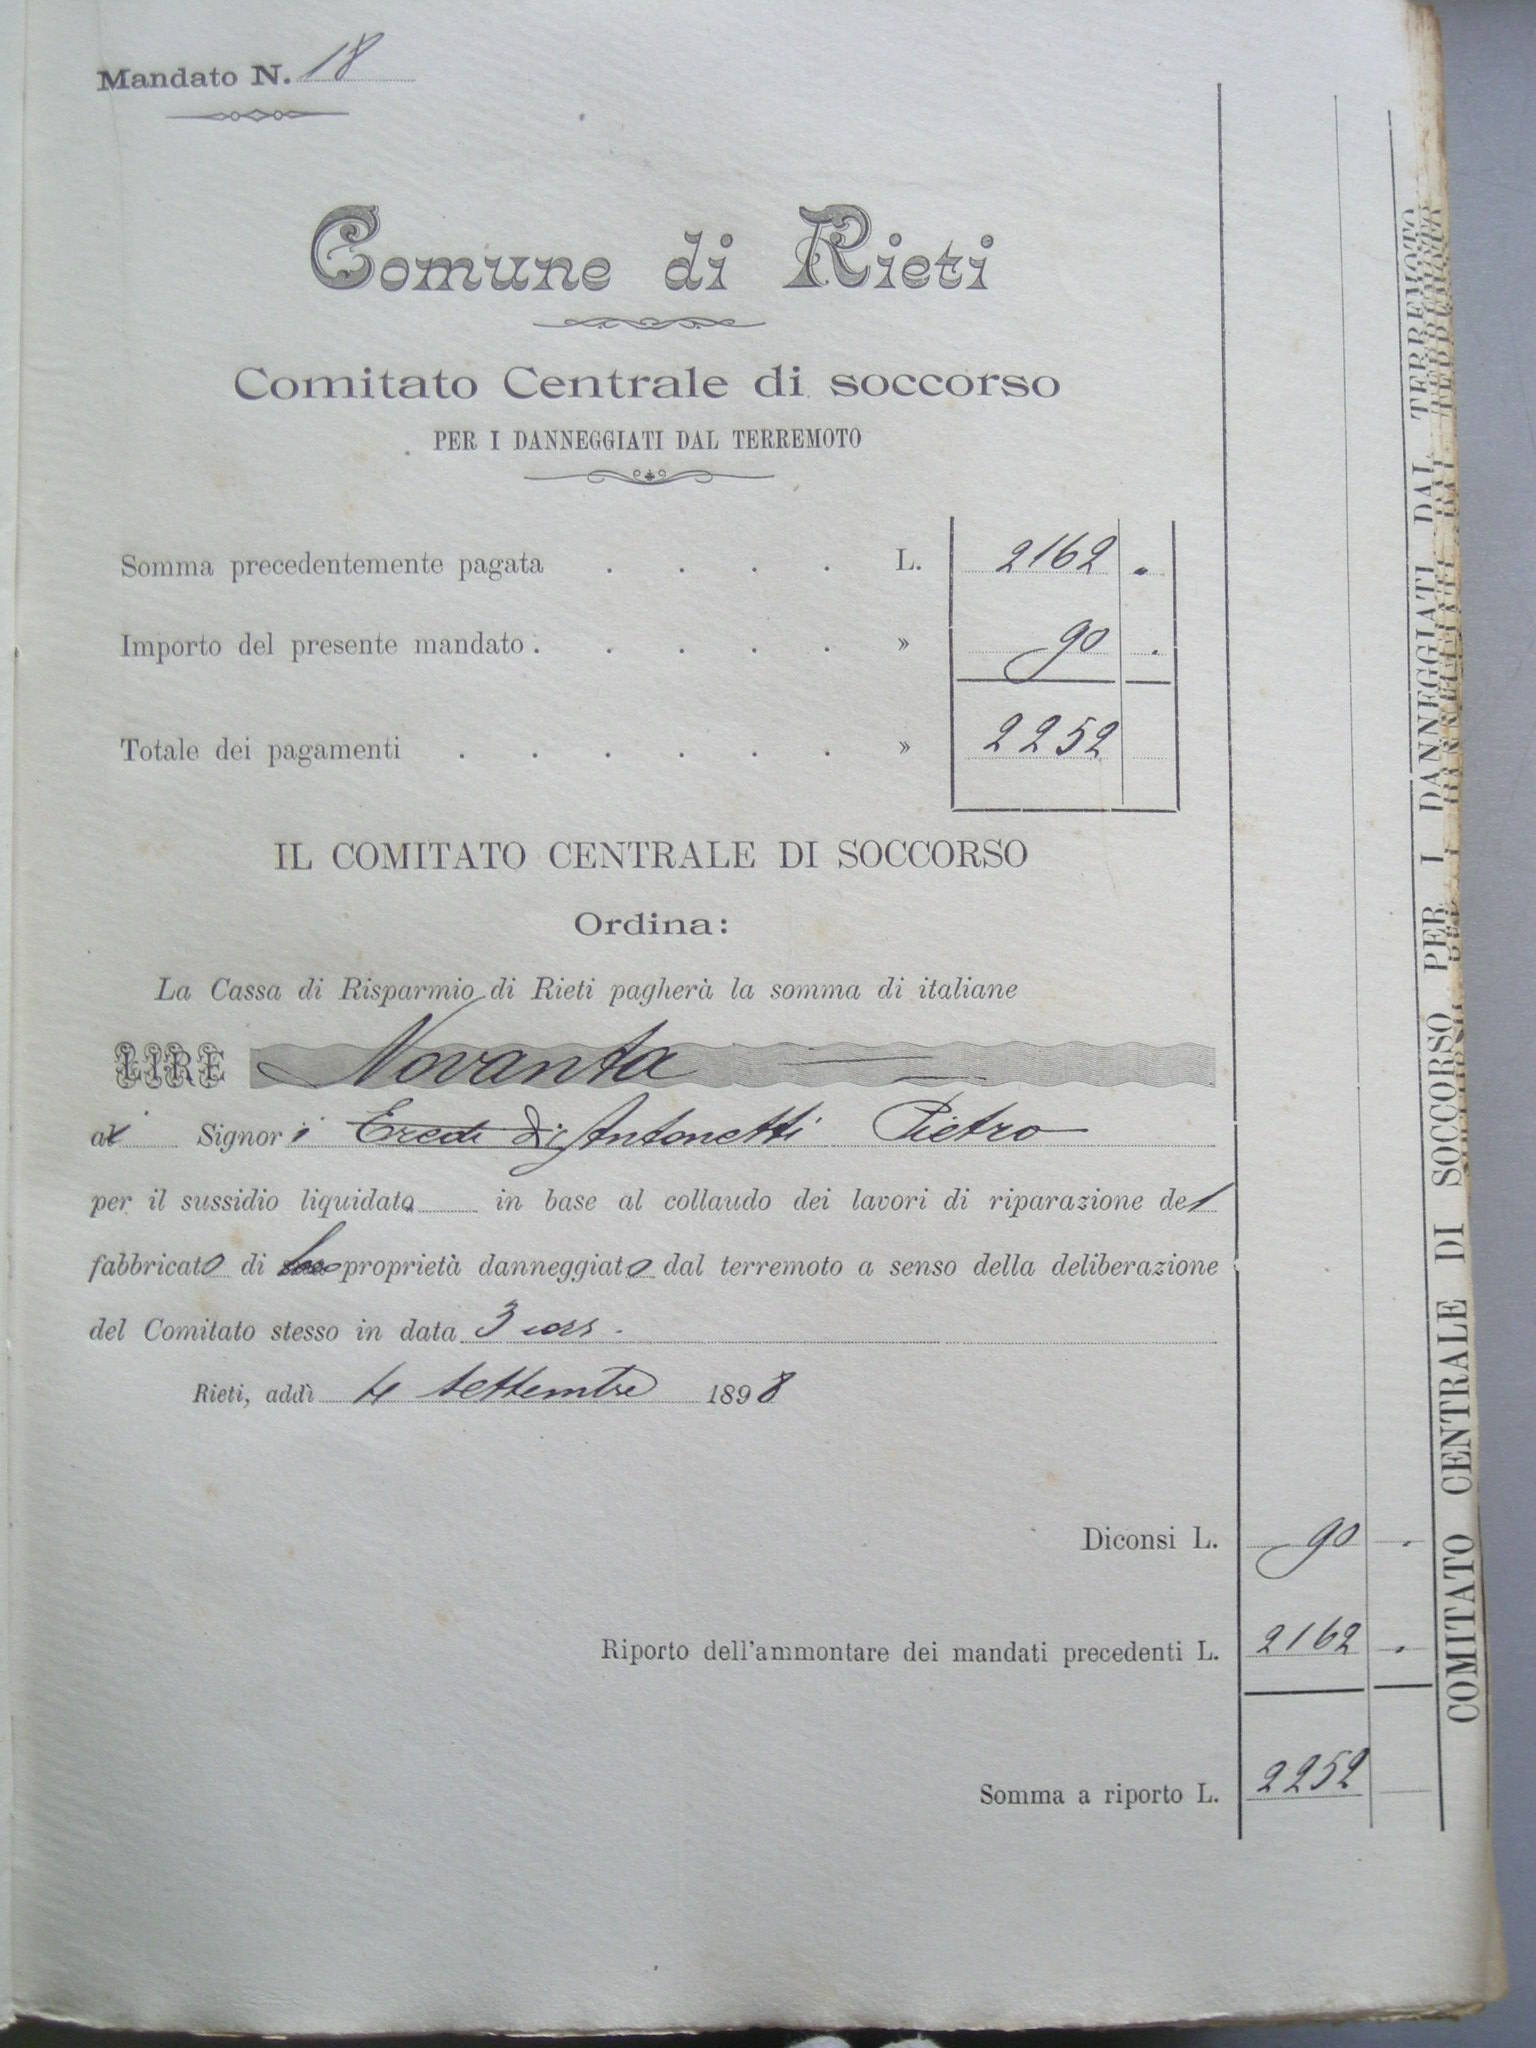 Mandato N. 18
Comune di Rieti
Comitato Centrale di soccorso
PER I DANNEGGIATI DAL TERREMOTO
Somma precedentemente pagata . . . . L. 2162 "
Importo del presente mandato . . . . . » 90 .
Totale dei pagamenti . . . . . . » 2252
IL COMITATO CENTRALE DI SOCCORSO
Ordina:
La Cassa di Risparmio di Rieti pagherà la somma di italiane
LIRE Novanta
ai Signori Eredi di Antonetti Pietro
per il sussidio liquidato in base al collaudo dei lavori di riparazione del
fabbricato di loro proprietà danneggiato dal terremoto a senso della deliberazione
del Comitato stesso in data 3 corr.
Rieti, addì 4 settembre 1898
Diconsi L. 90 .
Riporto dell'ammontare dei mandati precedenti L. 2162 .
Somma a riporto L. 2252
COMITATO CENTRALE DI SOCCORSO PER I DANNEGGIATI DAL TERREMOTO